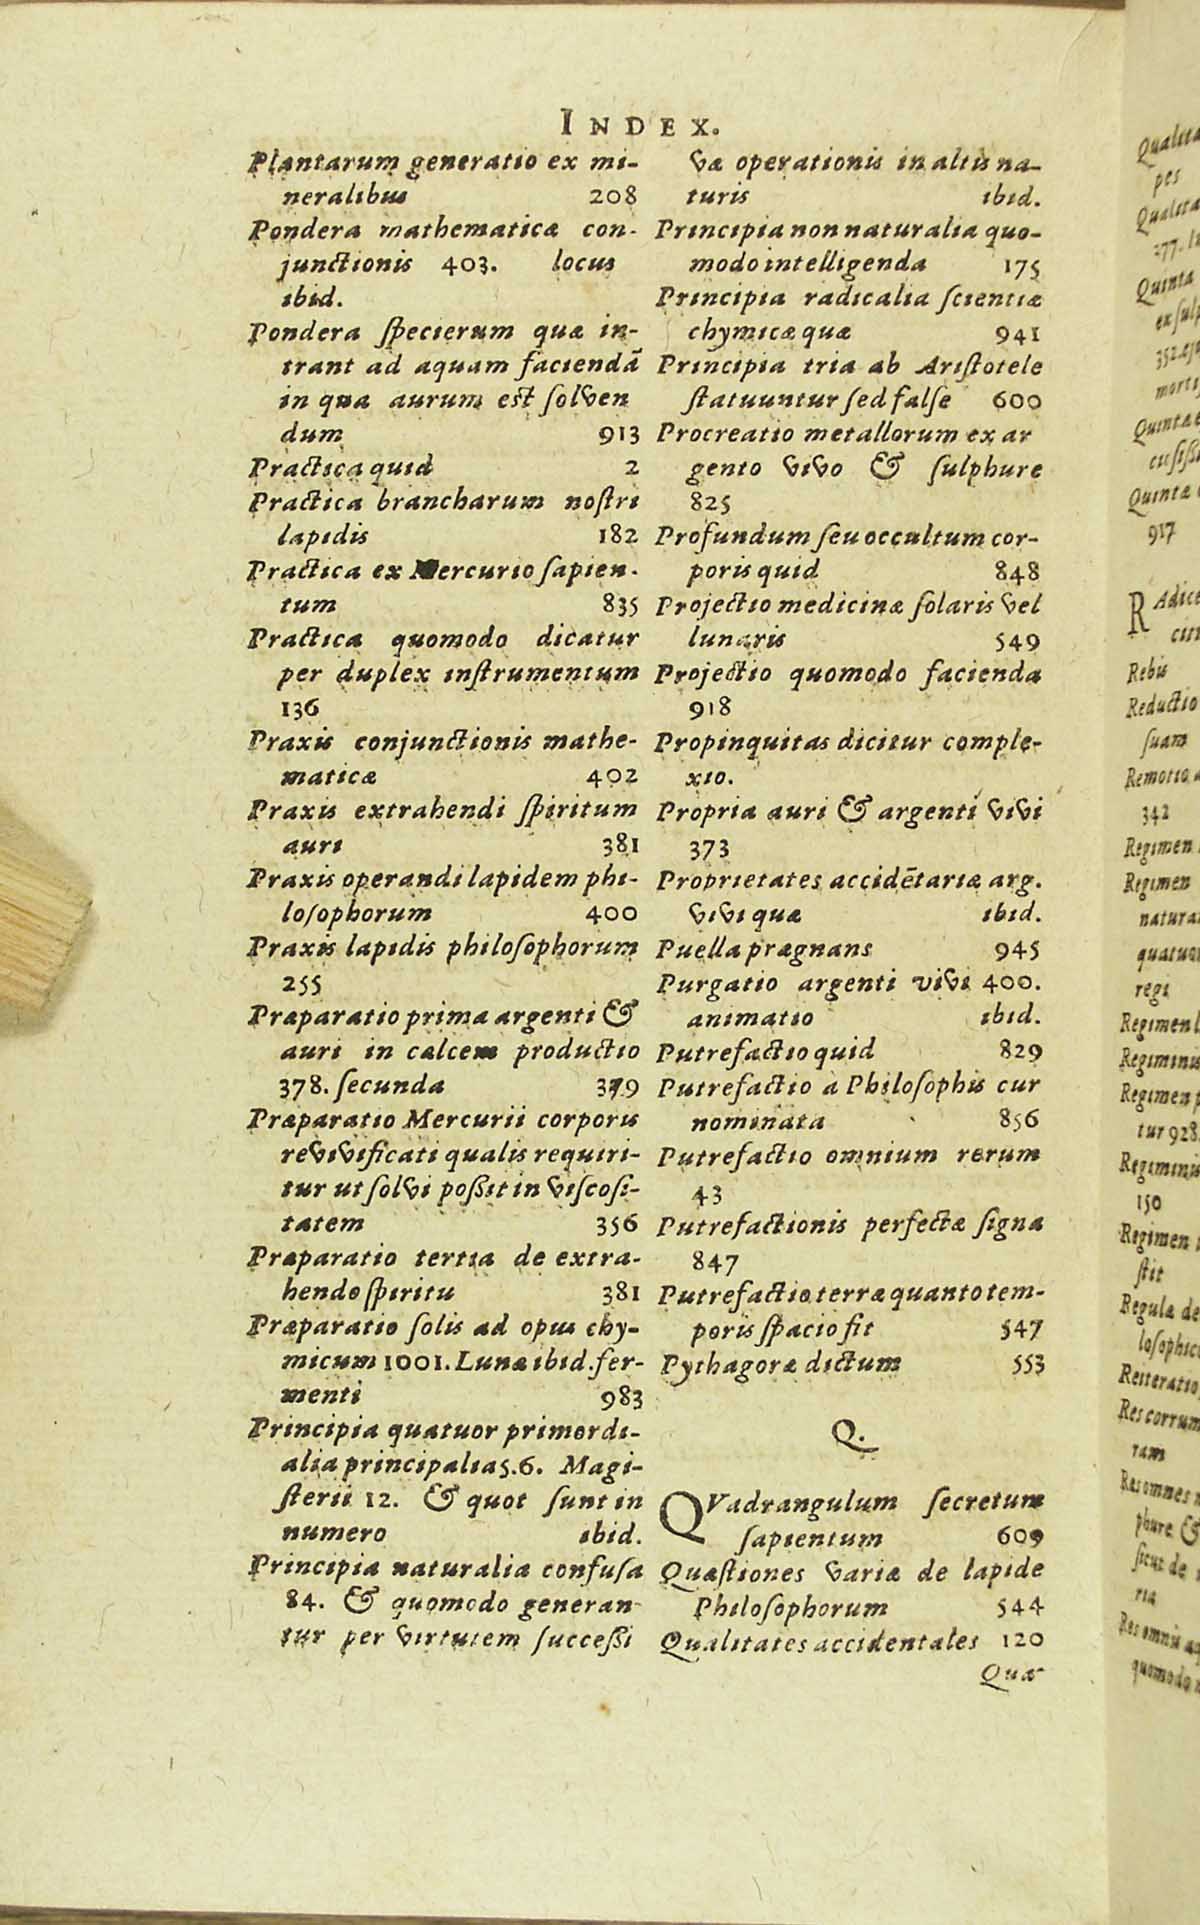 INDEX.
Plantarum generatio ex mi-
neralibus 208
Pondera mathematicæ con-
junctionis 403. locus
ibid.
Pondera specierum quæ in-
trant ad aquam faciendā
in qua aurum est solven
dum 913
Practica quid 2
Practica brancharum nostri
lapidis 182
Practica ex Mercurio sapien-
tum 835
Practica quomodo dicatur
per duplex instrumentum
136
Praxis conjunctionis mathe-
maticæ 402
Praxis extrahendi spiritum
auri 381
Praxis operandi lapidem phi-
losophorum 400
Praxis lapidis philosophorum
255
Præparatio prima argenti &
auri in calcem productio
378. secunda 379
Præparatio Mercurii corporis
revivificati qualis requiri-
tur ut solvi possit in viscosi-
tatem 356
Præparatio tertia de extra-
hendo spiritu 381
Præparatio solis ad opus chy-
micum 1001. Lunæ ibid. fer-
menti 983
Principia quatuor primordi-
alia principalia 5.6. Magi-
sterii 12. & quot sunt in
numero ibid.
Principia naturalia confusa
84. & quomodo generan
tur per virtutem successi
væ operationis in altis na-
turis ibid.
Principia non naturalia quo-
modo intelligenda 175
Principia radicalia scientiæ
chymicæ quæ 941
Principia tria ab Aristotele
statuuntur sed false 600
Procreatio metallorum ex ar
gento vivo & sulphure
825
Profundum seu occultum cor-
poris quid 848
Projectio medicinæ solaris vel
lunaris 549
Projectio quomodo facienda
918
Propinquitas dicitur comple-
xio.
Propria auri & argenti vivi
373
Proprietates accidētariæ arg.
vivi quæ ibid.
Puella prægnans 945
Purgatio argenti vivi 400.
animatio ibid.
Putrefactio quid 829
Putrefactio à Philosophis cur
nominata 856
Putrefactio omnium rerum
43
Putrefactionis perfectæ signa
847
Putrefactio terræ quanto tem-
poris spacio fit 547
Pythagoræ dictum 553
Q.
QVadrangulum secretum
sapientum 609
Quæstiones variæ de lapide
Philosophorum 544
Qualitates accidentales 120
Quæ
pes
Quinta
917
Rebis
Reductio
suam
342
Regimen
Regimen
regi
Regiminis
tur 928.
150
Regimen
stit
Regulæ de
Reiteratio
ram
Res omnes
sicut de
ria
Res omnis
quomodo